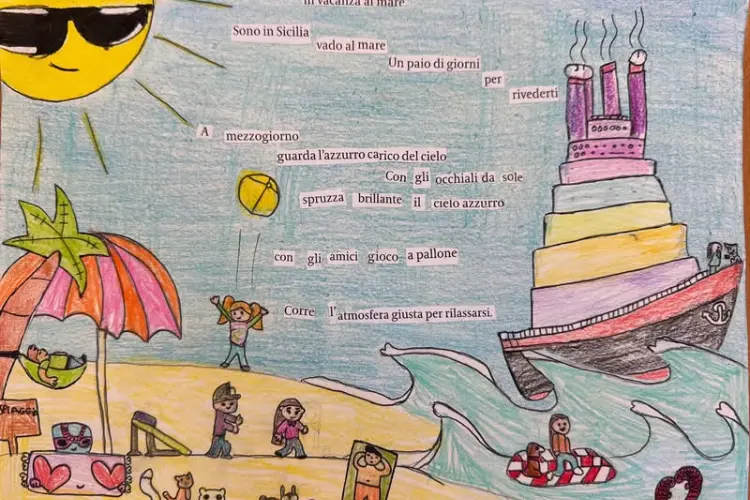 in vacanza al mare
Sono in Sicilia
vado al mare
Un paio di giorni
per
rivederti
A mezzogiorno
guarda l'azzurro carico del cielo
Con gli occhiali da sole
spruzza brillante il cielo azzurro
con gli amici gioco a pallone
Corre l'atmosfera giusta per rilassarsi.